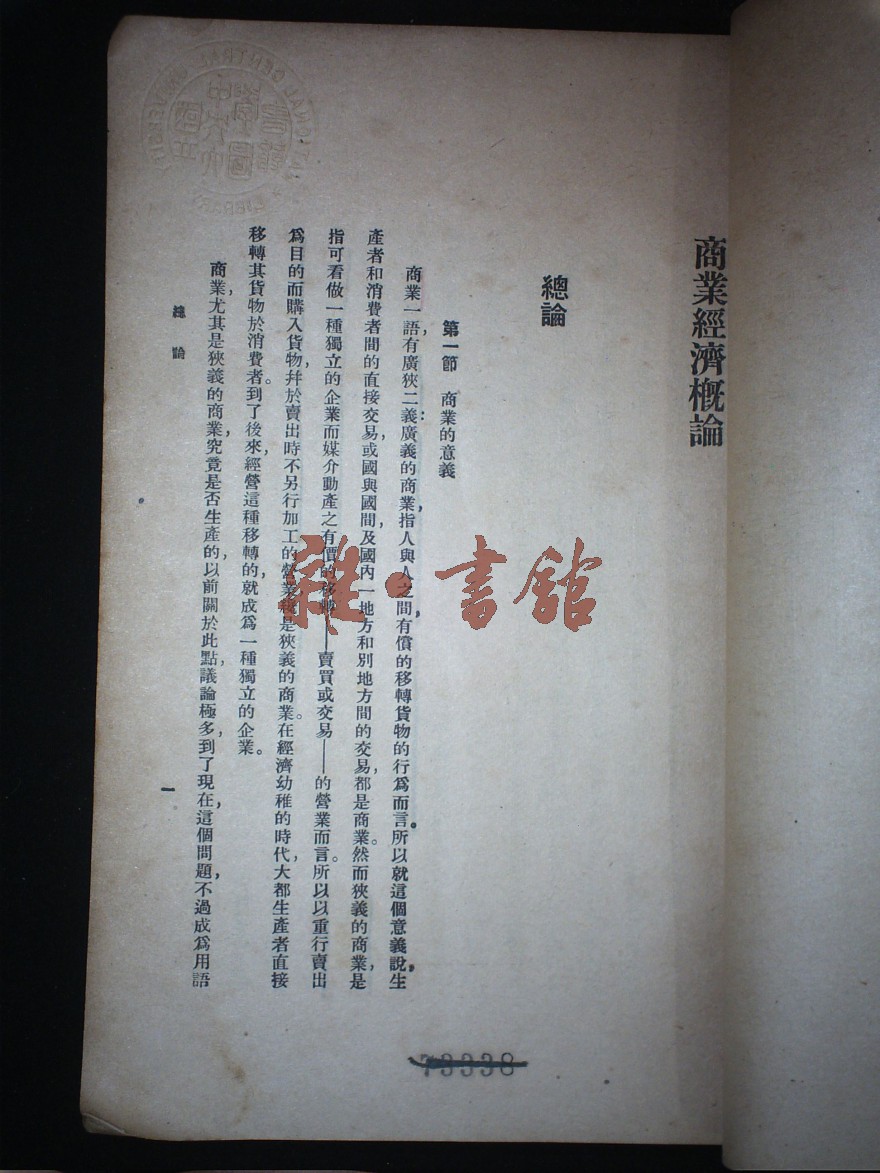 商業經濟概論
總論
第一節 商業的意義
商業一語，有廣狹二義：廣義的商業，指人與人之間有償的移轉貨物的行爲而言。所以就這個意義說，生
產者和消費者間的直接交易，或國與國間及國內一地方和別地方間的交易，都是商業。然而狹義的商業，是
指可看做一種獨立的企業而媒介動產之有價的移轉——賣買或交易——的營業而言。所以以重行賣出
爲目的而購入貨物，幷於賣出時不另行加工的營業，纔是狹義的商業。在經濟幼稚的時代，大都生產者直接
移轉其貨物於消費者。到了後來，經營這種移轉的，就成爲一種獨立的企業。
商業，尤其是狹義的商業，究竟是否生產的，以前關於此點，議論極多，到了現在，這個問題，不過成爲用語
總論
一
73338
雜·書館
國立中央大學圖書館
NATIONAL CENTRAL UNIVERSITY
LIBRARY